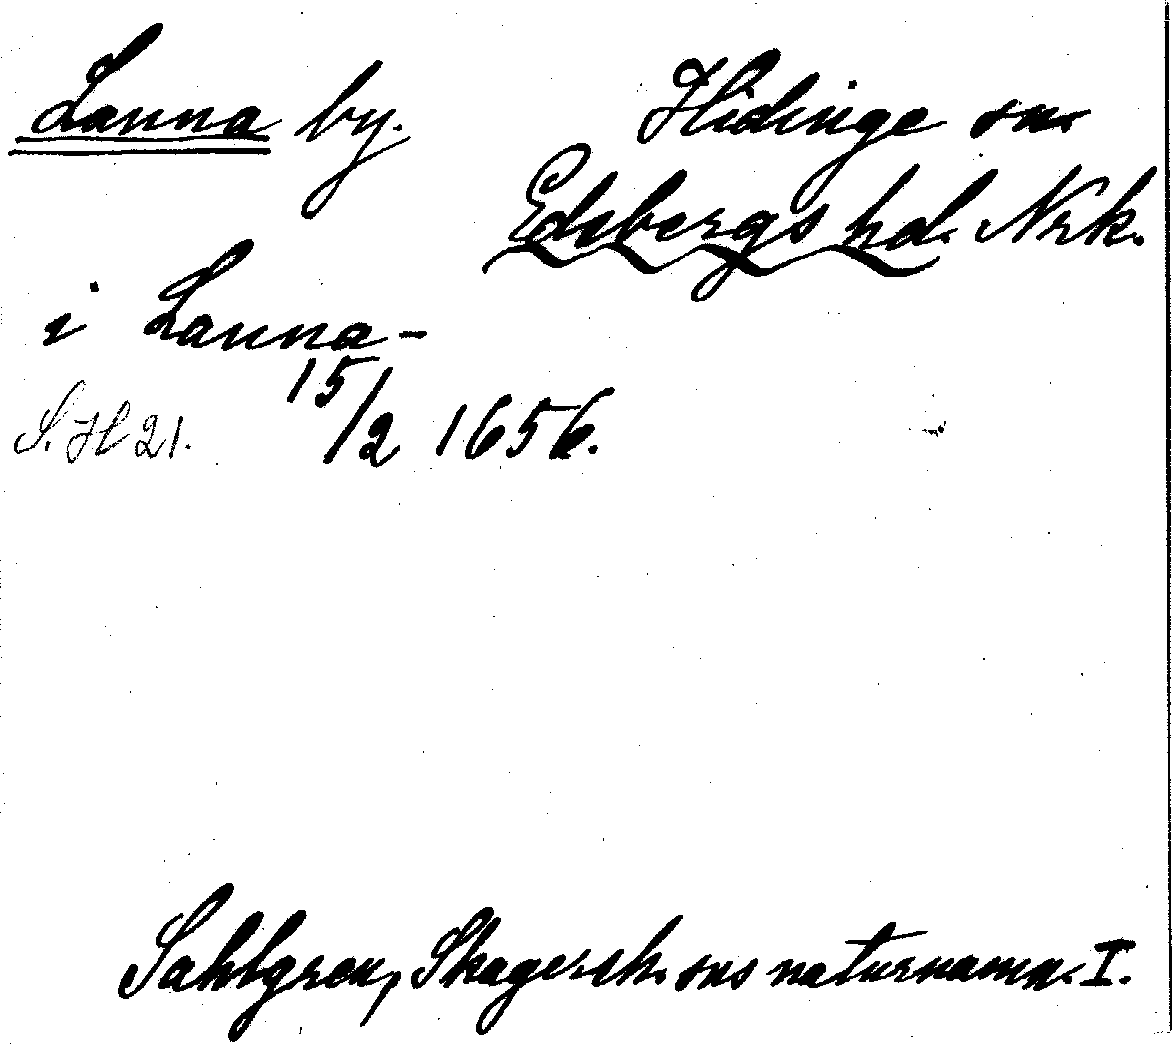 Lanna by. Hidinge sn.
Edsbergs hd. Nrk.
i Lanna -
15/2 1656.
S. H 21.
Sahlgren, Skagersh. sns naturnamn. I.